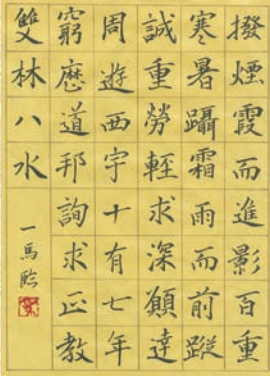 撥煙霞而進影百重
寒暑躡霜雨而前蹤
誠重勞輕求深願達
周遊西宇十有七年
窮歷道邦詢求正教
雙林八水
一馬臨